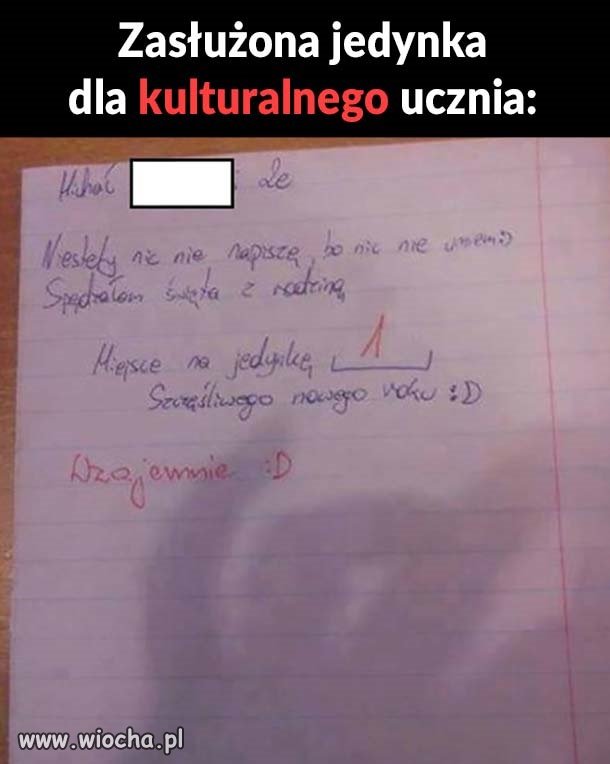 Zasłużona jedynka
dla kulturalnego ucznia:
Michał 2e
Niestety nic nie napiszę, bo nic nie umiem :)
Spędzałem święta z rodziną
Miejsce na jedynkę 1
Szczęśliwego nowego roku :D
Wzajemnie :D
www.wiocha.pl